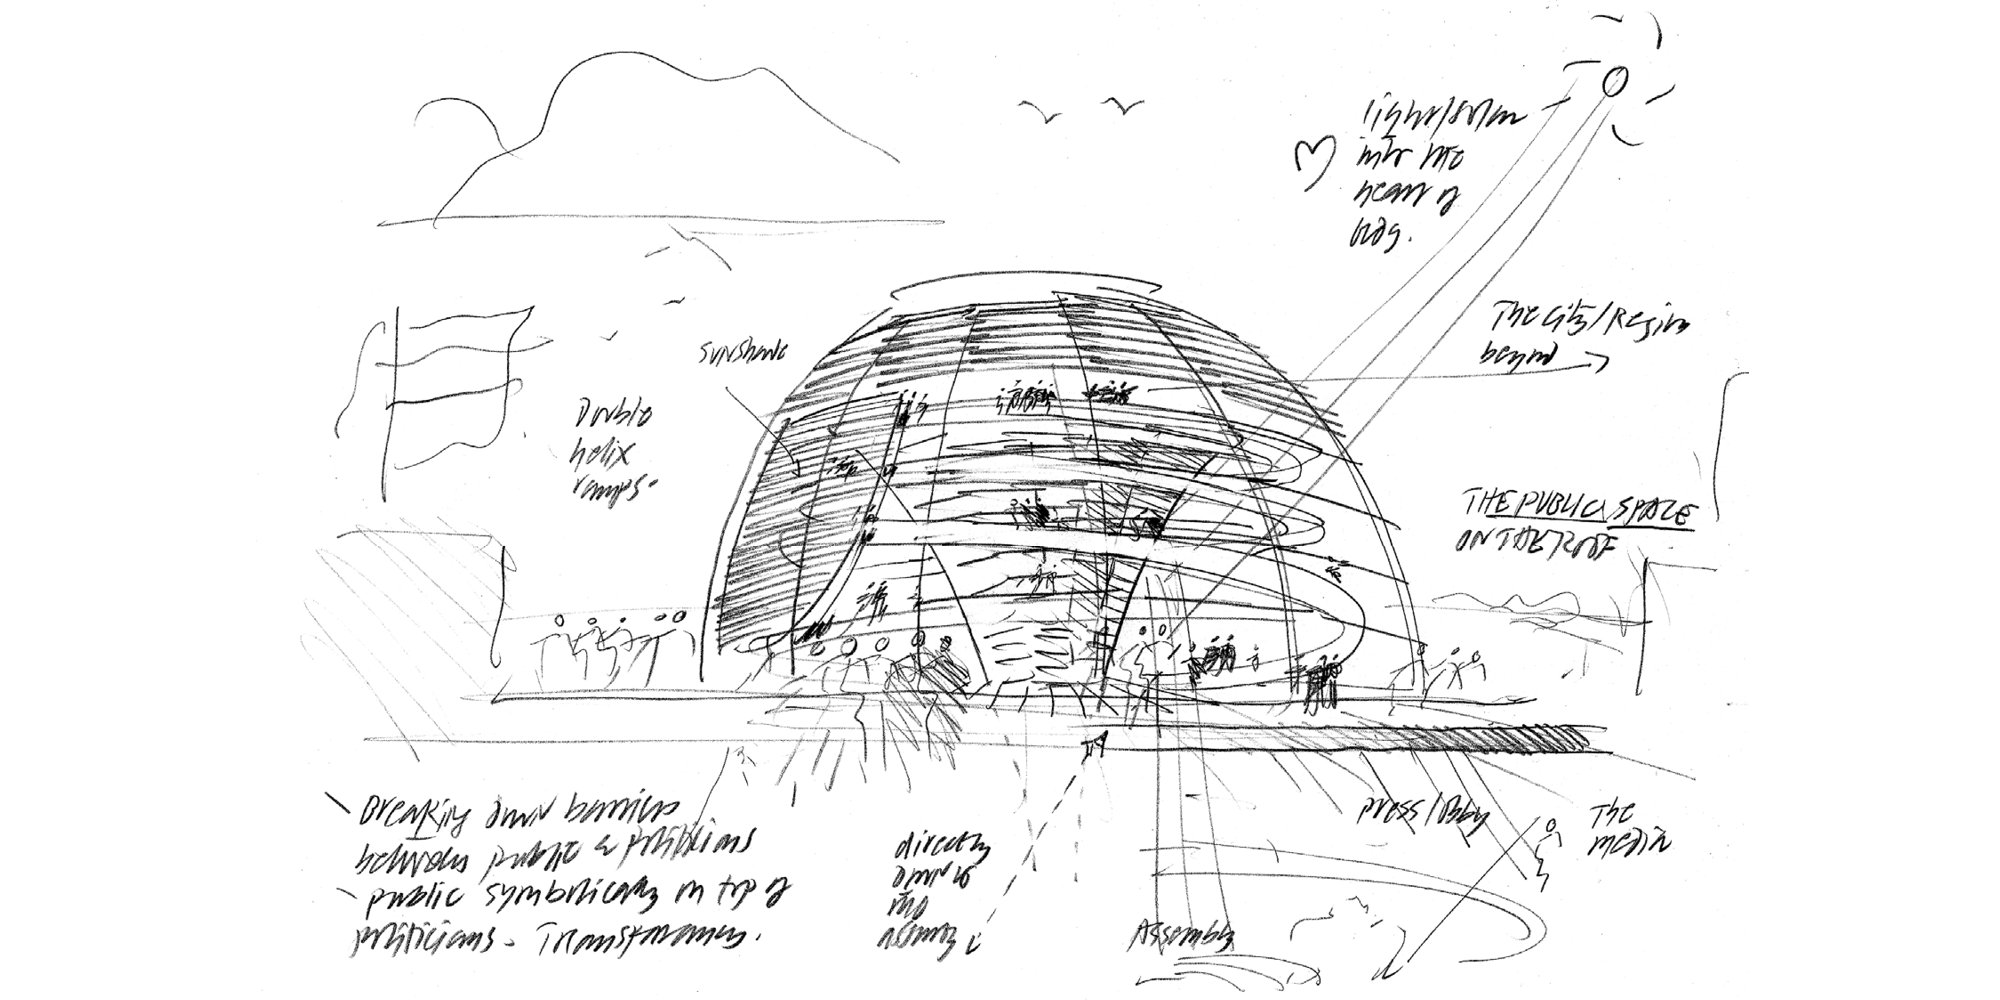 light/solar
into the
heart of
bldg.
The City/Region
beyond
sunshade
Double
helix
ramps.
THE PUBLIC SPACE
ON THE ROOF
Breaking down barriers
between public & politicians
public symbolically on top of
politicians - Transparency.
directly
down to
the
assembly
Assembly
press/lobby
The
media